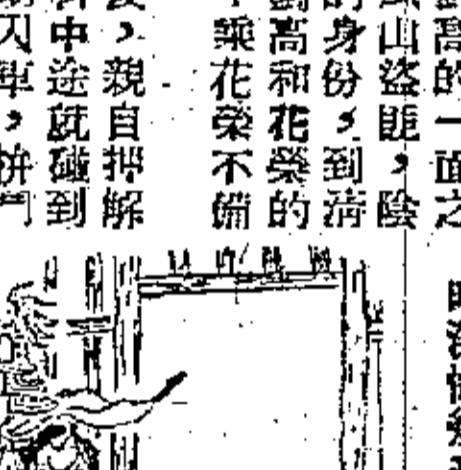 高的一面之
山盜匪,陰
的身份,到清
高和花榮的
乘花榮不備
,親自押解
中途就碰到
囚車,拚鬥